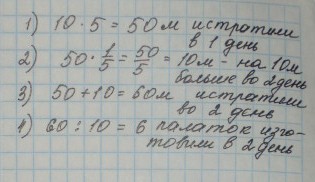 1) 10 · 5 = 50 м истратили
в 1 день
2) 50 · 1/5 = 50/5 = 10м - на 10м
больше во 2 день
3) 50 + 10 = 60м истратили
во 2 день
4) 60 : 10 = 6 палаток изго-
товили в 2 день